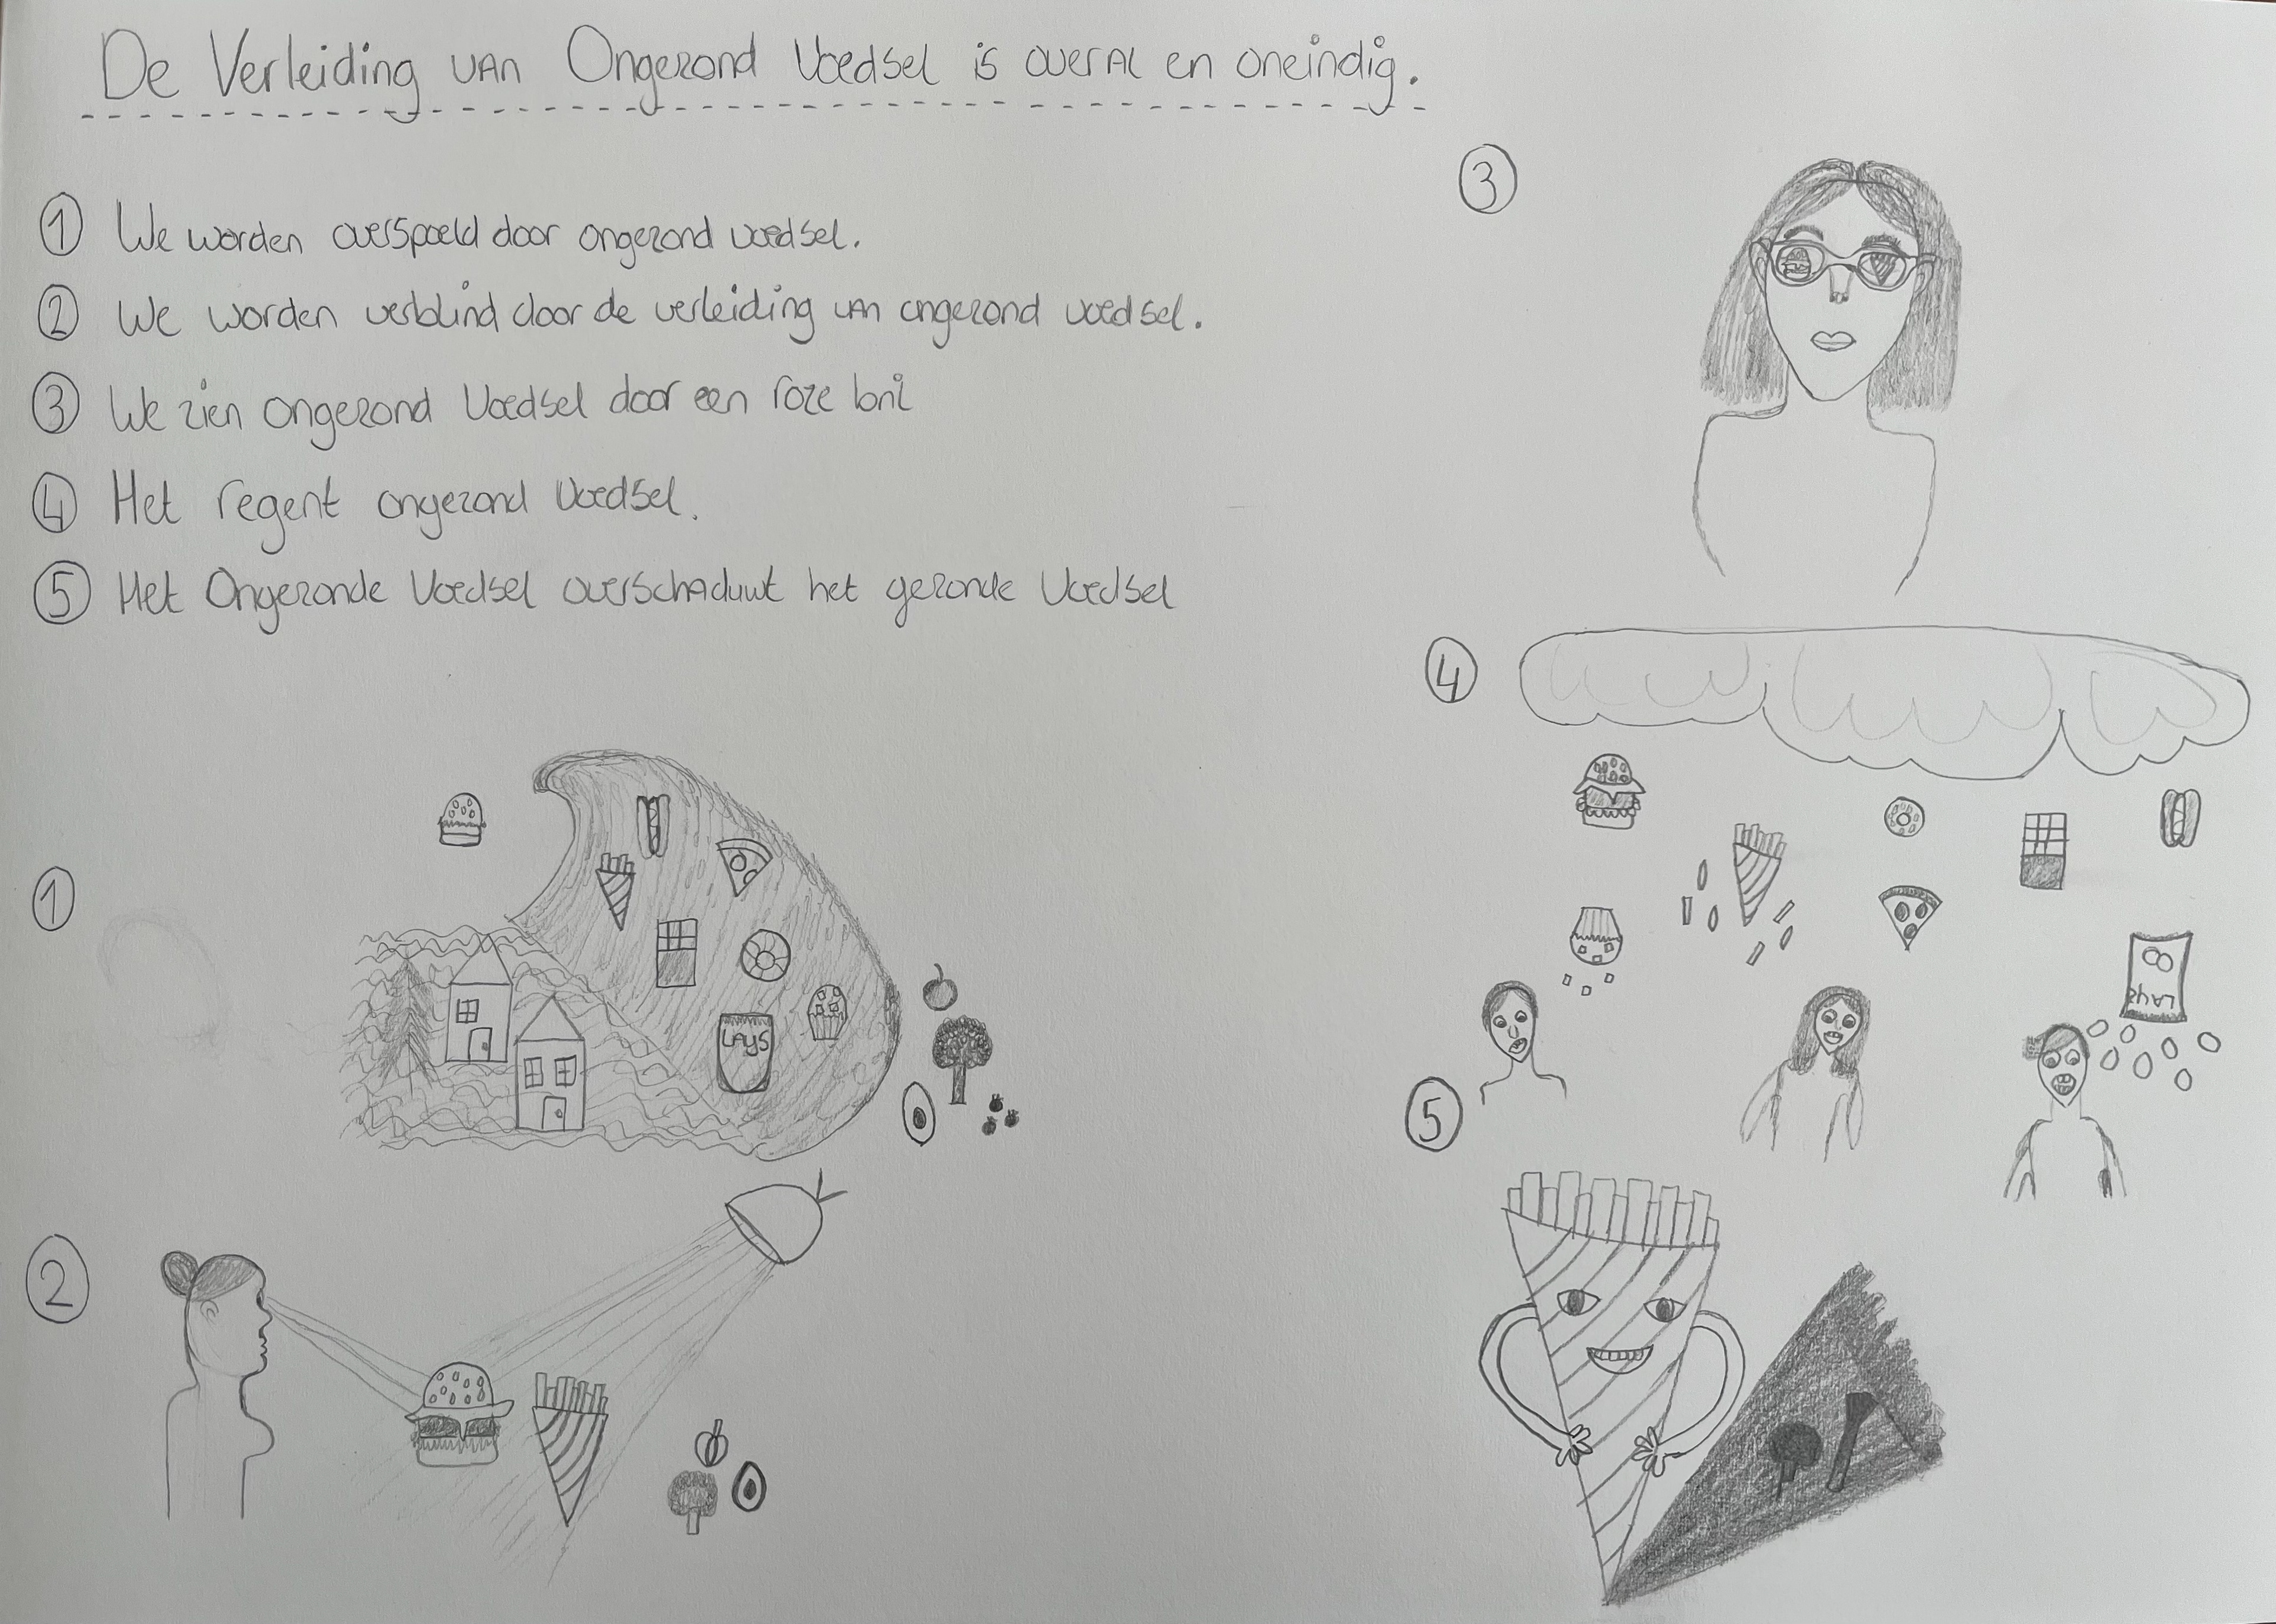 De Verleiding van Ongezond Voedsel is overal en oneindig.
1 We worden overspoeld door ongezond voedsel.
2 We worden verblind door de verleiding van ongezond voedsel.
3 We zien ongezond Voedsel door een roze bril
4 Het regent ongezond Voedsel.
5 Het Ongezonde Voedsel overschaduwt het gezonde Voedsel
3
4
LAYS
1
LAYS
5
2